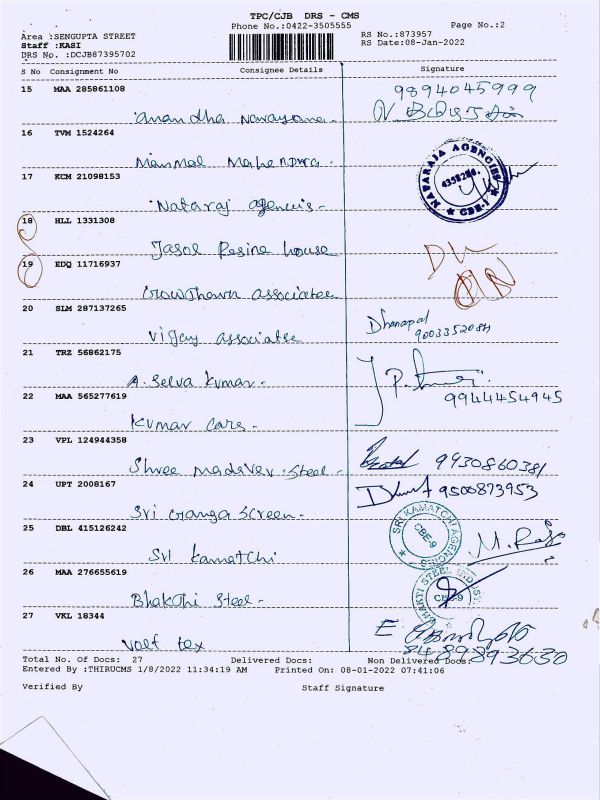 TPC/CJB DRS - CMS
Phone No.:0422-3505555 Page No.:2
Area :SENGUPTA STREET RS No.:873957
Staff :KASI RS Date:08-Jan-2022
DRS No. :DCJB87395702
S No Consignment No Consignee Details Signature
15 MAA 285861108 9894045999
Anandha Narayana
16 TVM 1524264
Manmal Mahendra
17 KCM 21098153 NATARAJA AGENCIES CBE-1
Nataraj agencies
18 HLL 1331308
Jasol Resine house
19 EDQ 11716937
associates
20 SLM 287137265 Dhanapal
Vijay associates 9003352084
21 TRZ 56862175
A. Selva Kumar
22 MAA 565277619 9944454945
Kumar Cars
23 VPL 124944358
Shree Madavev Steel 9930860381
24 UPT 2008167 9500873953
Sri Ganga Screen
25 DBL 415126242 SRI KAMATCHI AGENCIES CBE-9
Sri Kamatchi M. Raja
26 MAA 276655619 BHAKTI STEEL INDUST CBE-9
Bhakthi Steel
27 VKL 18344
Volt tex 8489893630
Total No. Of Docs: 27 Delivered Docs: Non Delivered Docs:
Entered By :THIRUCMS 1/8/2022 11:34:19 AM Printed On: 08-01-2022 07:41:06
Verified By Staff Signature